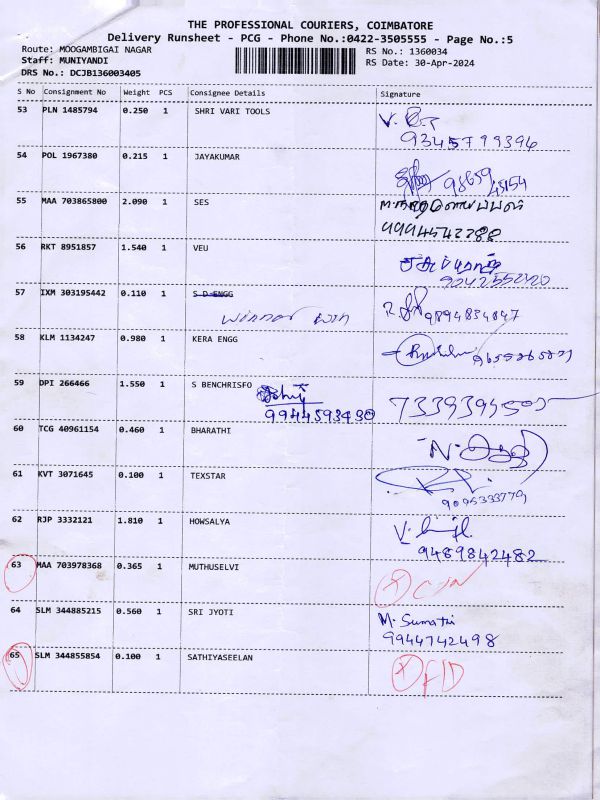 THE PROFESSIONAL COURIERS, COIMBATORE
Delivery Runsheet - PCG - Phone No.:0422-3505555 - Page No.:5
Route: MOOGAMBIGAI NAGAR RS No.: 1360034
Staff: MUNIYANDI RS Date: 30-Apr-2024
DRS No.: DCJB136003405
S No Consignment No Weight PCS Consignee Details Signature
53 PLN 1485794 0.250 1 SHRI VARI TOOLS
9345799396
54 POL 1967380 0.215 1 JAYAKUMAR
55 MAA 703865800 2.090 1 SES
9994542288
56 RKT 8951857 1.540 1 VEU
9042552420
57 IXM 303195442 0.110 1 S D ENGG
9894834847
58 KLM 1134247 0.980 1 KERA ENGG
59 DPI 266466 1.550 1 S BENCHRISFO
9944593430
60 TCG 40961154 0.460 1 BHARATHI
61 KVT 3071645 0.100 1 TEXSTAR
9095333779
62 RJP 3332121 1.810 1 HOWSALYA
9489842482
63 MAA 703978368 0.365 1 MUTHUSELVI
64 SLM 344885215 0.560 1 SRI JYOTI M. Sumathi
9944742498
65 SLM 344855854 0.100 1 SATHIYASEELAN